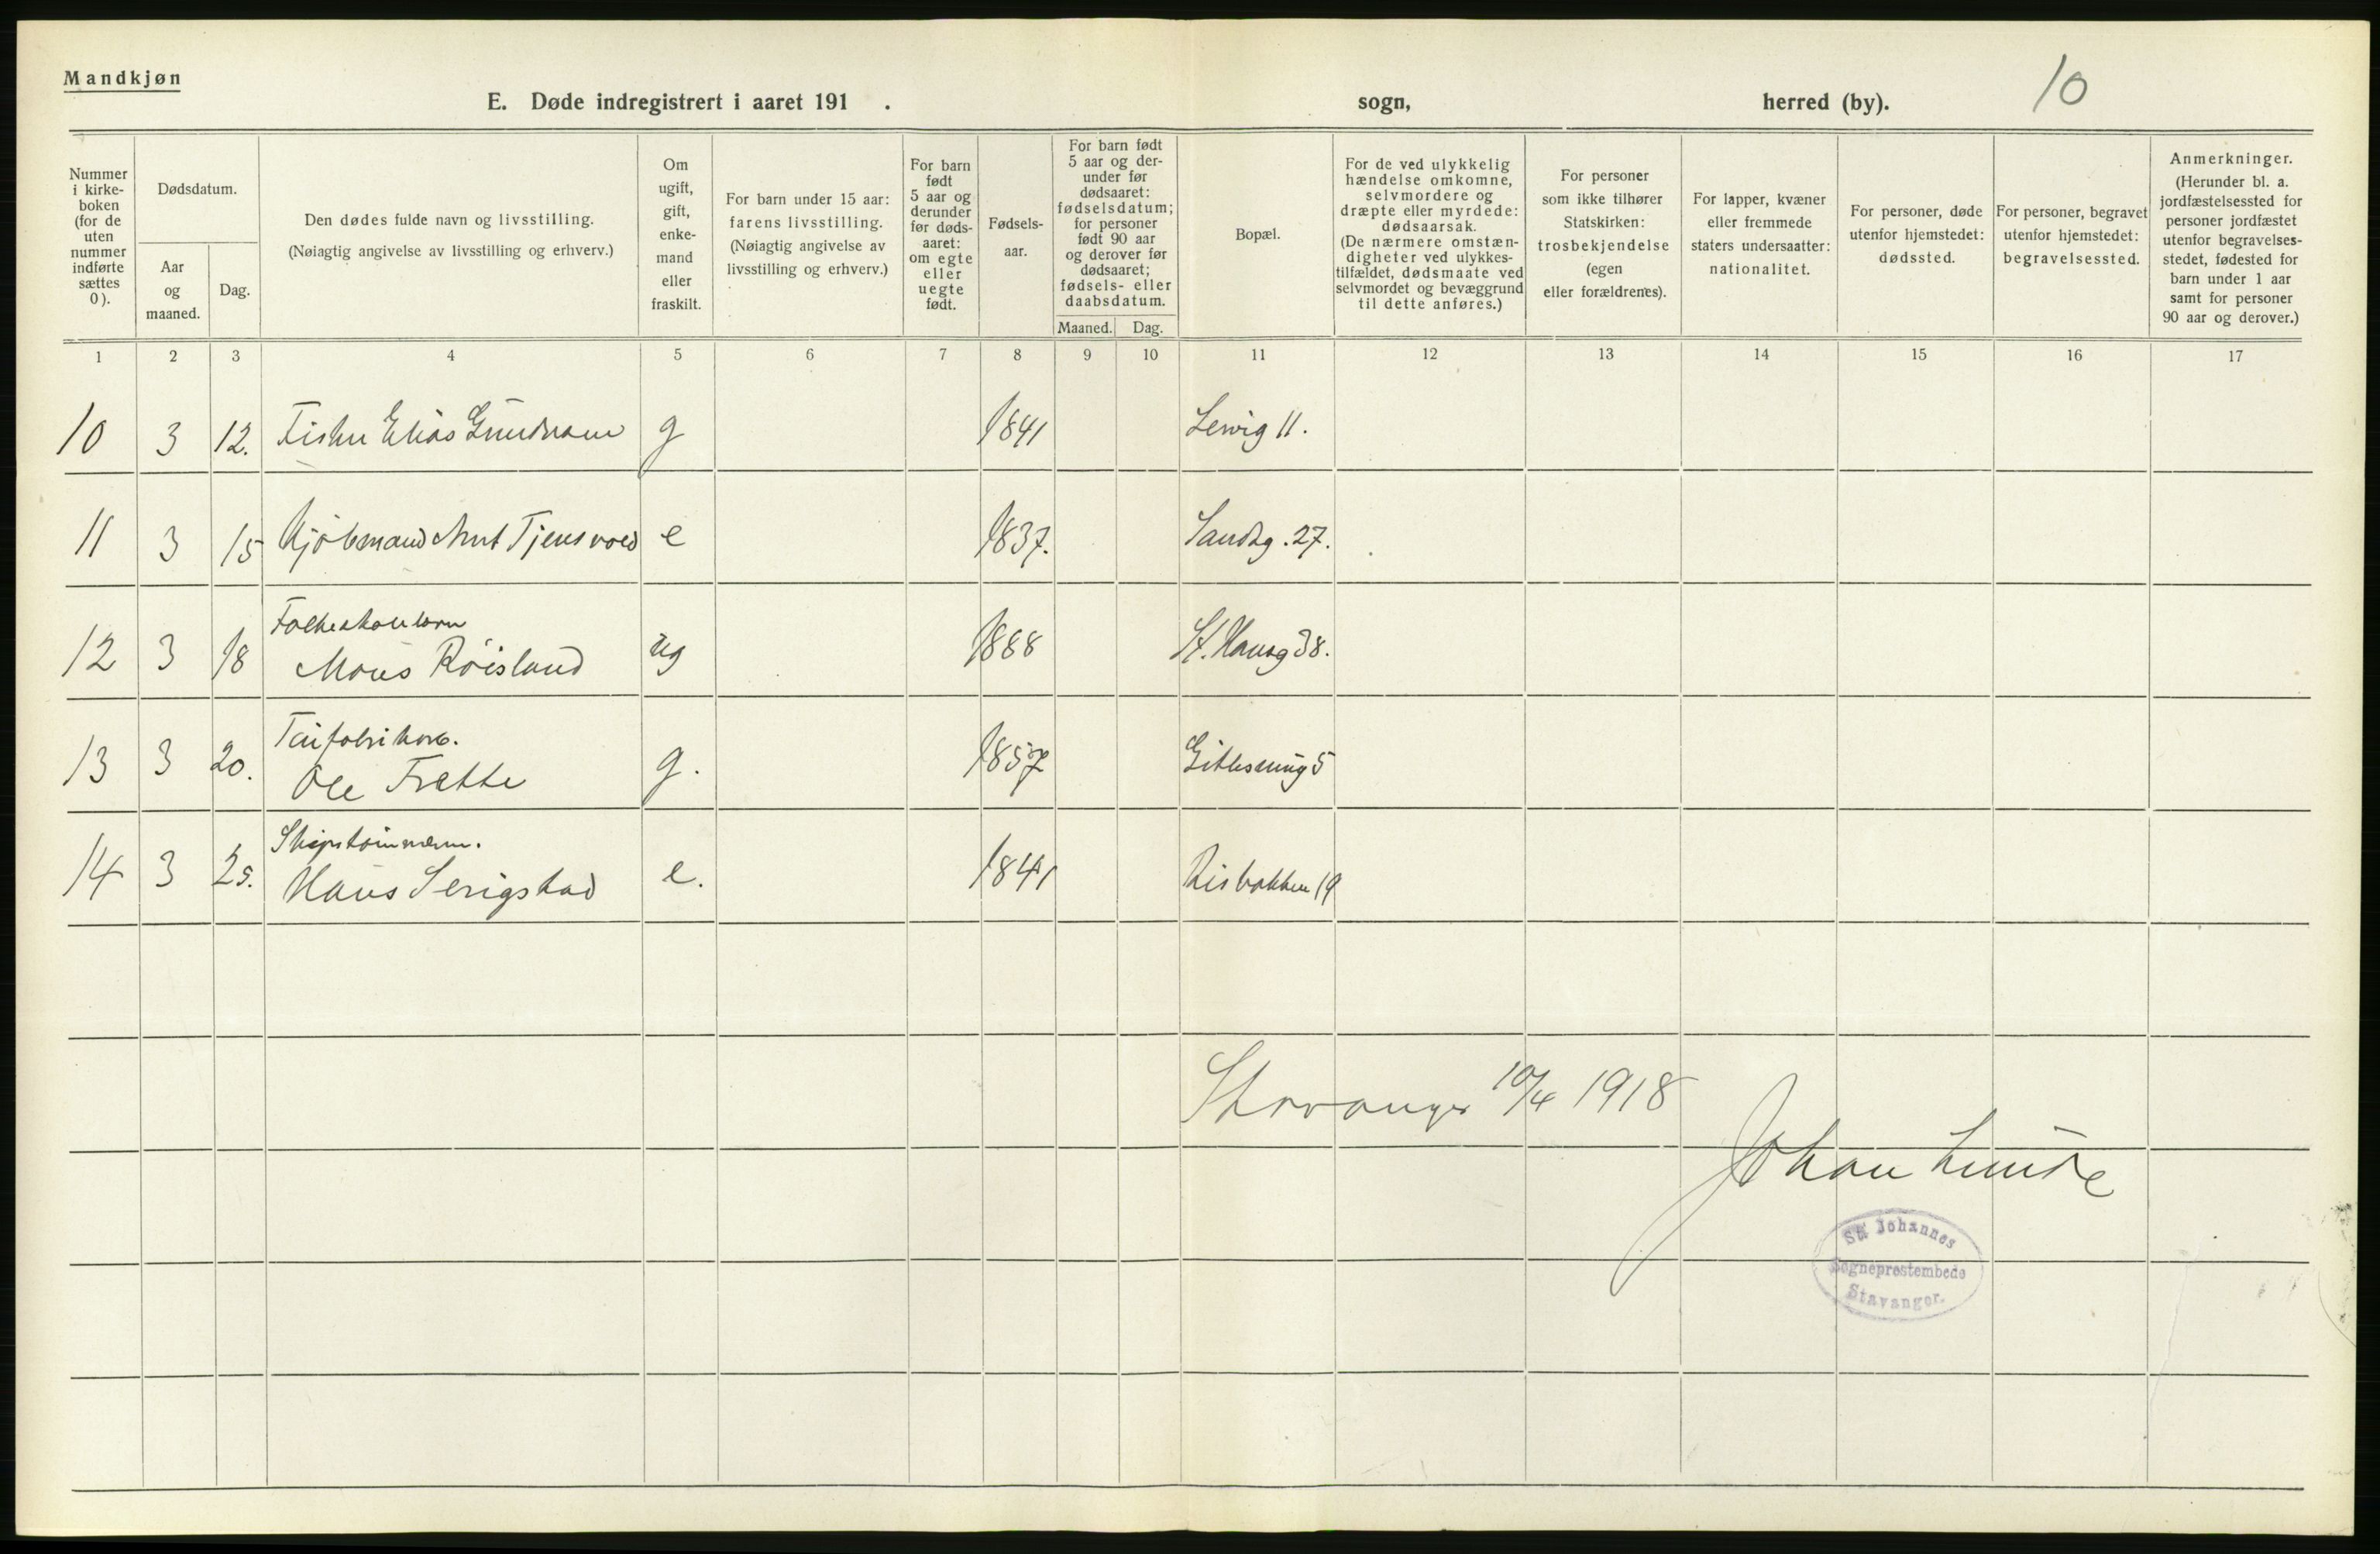 Mandkjøn
E. Døde indregistrert i aaret 191 . sogn, herred (by). 10
Nummer i kirke- boken (for de uten nummer indførte sættes 0).
Dødsdatum.
Aar og maaned.
Dag.
Den dødes fulde navn og livsstilling.
(Nøiagtig angivelse av livsstilling og erhverv.)
Om ugift, gift, enke- mand eller fraskilt.
For barn under 15 aar: farens livsstilling. (Nøiagtig angivelse av livsstilling og erhverv.)
For barn født 5 aar og derunder før døds- aaret: om egte eller uegte født.
Fødsels- aar.
For barn født 5 aar og der- under før dødsaaret: fødselsdatum; for personer født 90 aar og derover før dødsaaret; fødsels- eller daabsdatum.
Maaned. Dag.
Bopæl.
For de ved ulykkelig hændelse omkomne, selvmordere og dræpte eller myrdede: dødsaarsak. (De nærmere omstæn- digheter ved ulykkes- tilfældet, dødsmaate ved selvmordet og bevæggrund til dette anføres.)
For personer som ikke tilhører Statskirken: trosbekjendelse (egen eller forældrenes).
For lapper, kvæner eller fremmede staters undersaatter: nationalitet.
For personer, døde utenfor hjemstedet: dødssted.
For personer, begravet utenfor hjemstedet: begravelsessted.
Anmerkninger. (Herunder bl. a. jordfæstelsessted for personer jordfæstet utenfor begravelses- stedet, fødested for barn under 1 aar samt for personer 90 aar og derover.)
1 2 3 4 5 6 7 8 9 10 11 12 13 14 15 16 17
10 3 12. Fisker Elias g 1841 Lervig 11.
11 3 15 Kjøbmand Tjensvold e 1837. Sandg. 27.
12 3 18
Mons Røisland ug 1888 St. Hansg 38.
13 3 20.
Ole Trætte g. 1857 5
14 3 25. Skipstømmerm.
Hans Serigstad e. 1841 Risbakken 19
Stavanger 10/4 1918
Johan Lunde
St Johannes
Sogneprestembede
Stavanger.